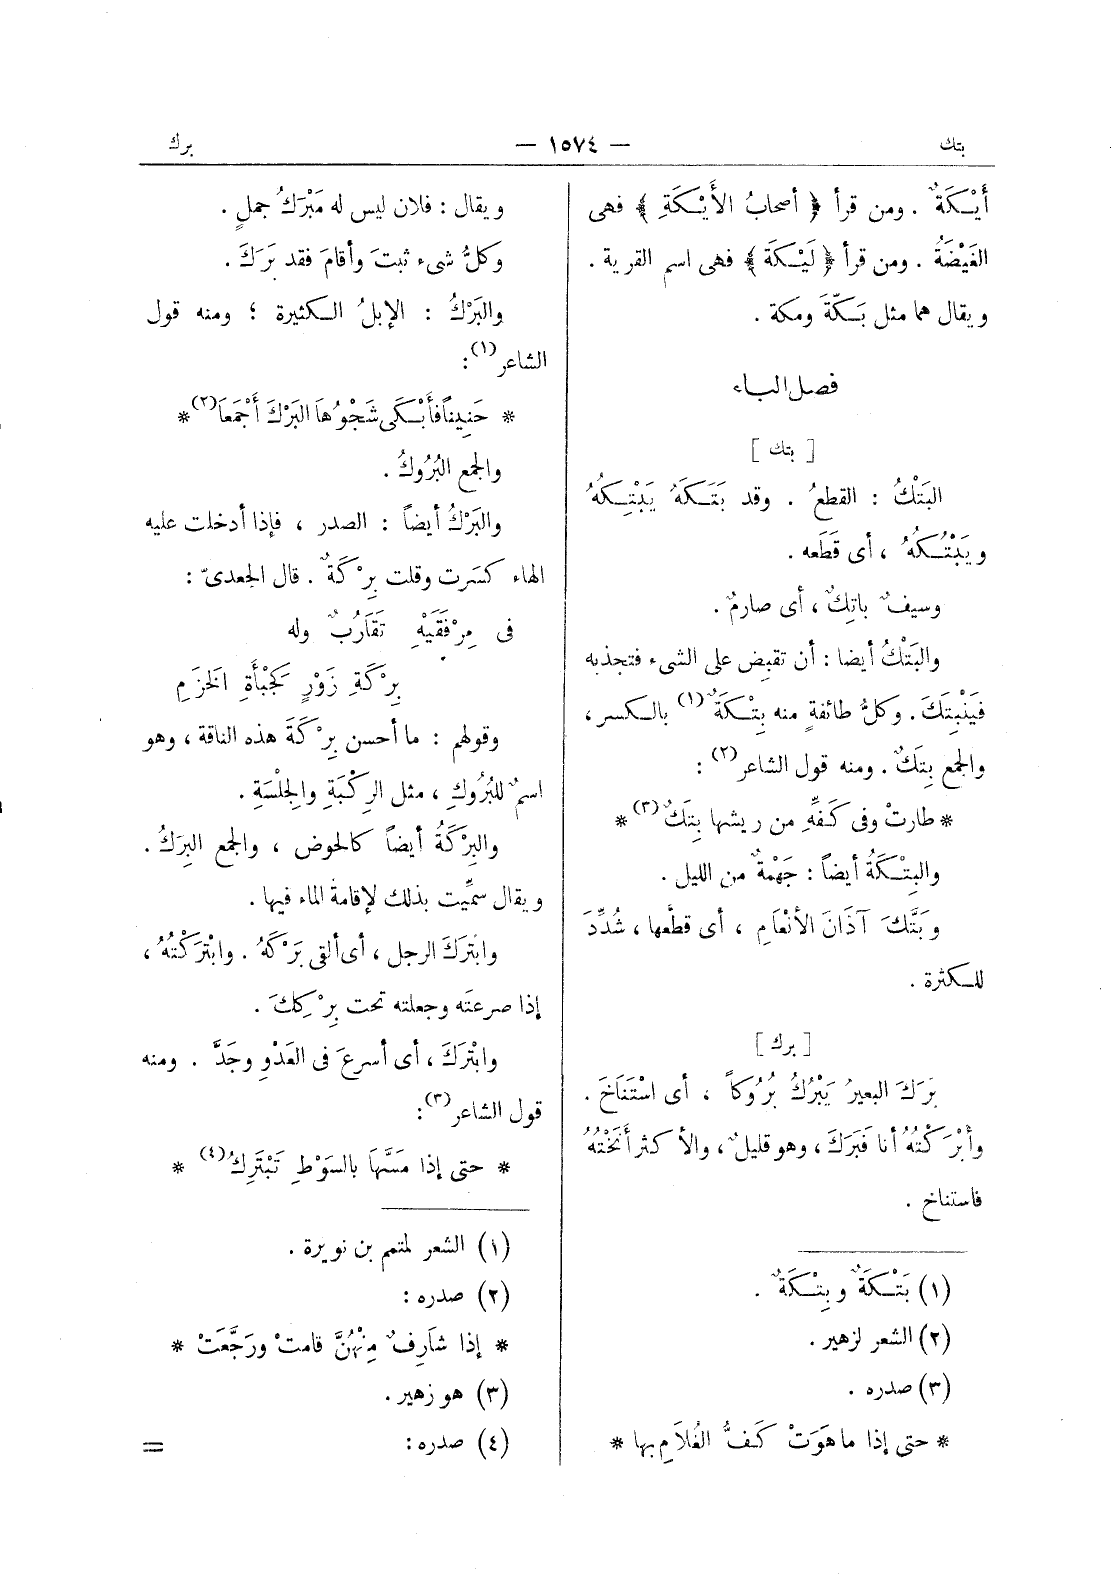 بتك — ١٥٧٤ — برك
أَيْكَةٌ . ومن قرأ ﴿ أصحابُ الأَيْكَةِ ﴾ فهى
الغَيْضَةُ . ومن قرأ ﴿ لَيْكَةَ ﴾ فهى اسم القرية .
ويقال هما مثل بَكَّةَ ومكة .
فصل الباء
[ بتك ]
البَتْكُ : القطعُ . وقد بَتَكَهُ يَبْتِكُهُ
ويَبْتُكُهُ ، أى قَطَعه .
وسيفٌ باتِكٌ ، أى صارمٌ .
والبَتْكُ أيضا : أن تقبِض على الشىء فتجذبه
فَيَنْبِتَكَ . وكلُّ طائفةٍ منه بِتْكَةٌ (١) بالكسر ،
والجمع بِتَكٌ . ومنه قول الشاعر (٢) :
* طارتْ وفى كَفِّهِ من ريشها بِتَكٌ (٣) *
والبِتْكَةُ أيضاً : جَهْمةٌ من الليل .
وَبَتَّكَ آذَانَ الأنْعَامِ ، أى قطَّعها ، شُدِّدَ
للكثرة .
[ برك ]
بَرَكَ البعيرُ يَبْرُكُ بُرُوكاً ، أى اسْتَنَاخَ .
وأَبْرَكْتُهُ أنا فَبَرَكَ ، وهو قليلٌ ، والأكثر أَنَخْتُهُ
فاستناخ .
(١) بَتْكَةٌ وبِتْكَةٌ .
(٢) الشعر لزهير .
(٣) صدره .
* حتى إذا ما هَوَتْ كَفُّ الغُلاَمِ بها *
ويقال : فلان ليس له مَبْرَكُ جملٍ .
وكلُّ شىء ثبتَ وأقامَ فقد بَرَكَ .
والبَرْكُ : الإبلُ الكثيرة ؛ ومنه قول
الشاعر (١) :
* حَنِيناً فأَبْكَى شَجْوُهَا البَرْكَ أَجْمَعَا (٢) *
والجمع البُرُوكُ .
والبَرْكُ أيضاً : الصدر ، فإذا أدخلت عليه
الهاء كسَرت وقلت بِرْكَةٌ . قال الجعدىّ :
فى مِرْفَقَيْهِ تَقَارُبٌ وله
بِرْكَةِ زَوْرٍ كَجَبْأَةِ الخَزَمِ
وقولهم : ما أحسن بِرْكَةَ هذه الناقة ، وهو
اسمٌ للبُرُوكِ ، مثل الرِكْبَةِ والجِلْسَةِ .
والبِرْكَةُ أيضاً كالحوض ، والجمع البِرَكُ .
ويقال سمِّيت بذلك لإقامة الماء فيها .
وابْتَرَكَ الرجل ، أى ألقى بَرْكَهُ . وابْتَرَكْتُهُ ،
إذا صرعتَه وجعلته تحت بِرْكِكَ .
وابْتَرَكَ ، أى أسرعَ فى العَدْوِ وجَدَّ . ومنه
قول الشاعر (٣) :
* حتى إذا مَسَّهَا بالسَوْطِ تَبْتَرِكُ (٤) *
(١) الشعر لمتمم بن نويرة .
(٢) صدره :
* إذا شَارِفٌ مِنْهُنَّ قامتْ ورَجَّعَتْ *
(٣) هو زهير .
(٤) صدره : =